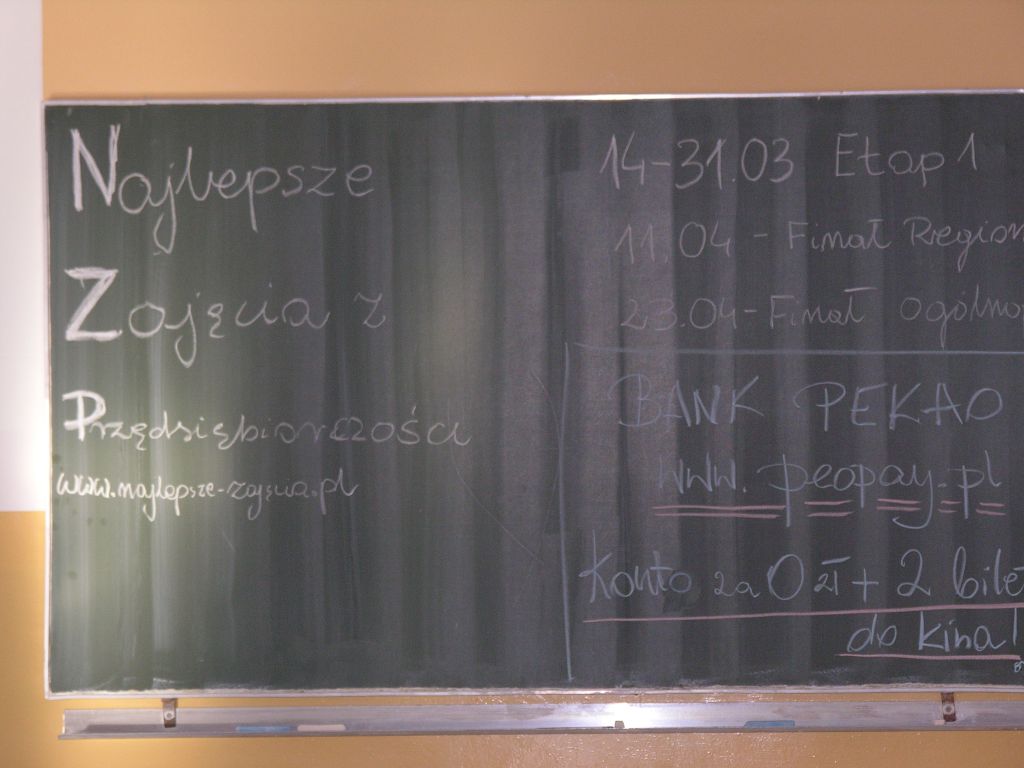 Najlepsze
Zajęcia z
Przędsiębiorczości
www.najlepsze-zajęcia.pl
14-31.03 Etap 1
11.04 - Finał Region
23.04 - Finał ogólno
BANK PEKAO
www.peopay.pl
Konto za 0 zł + 2 bile
do kina!